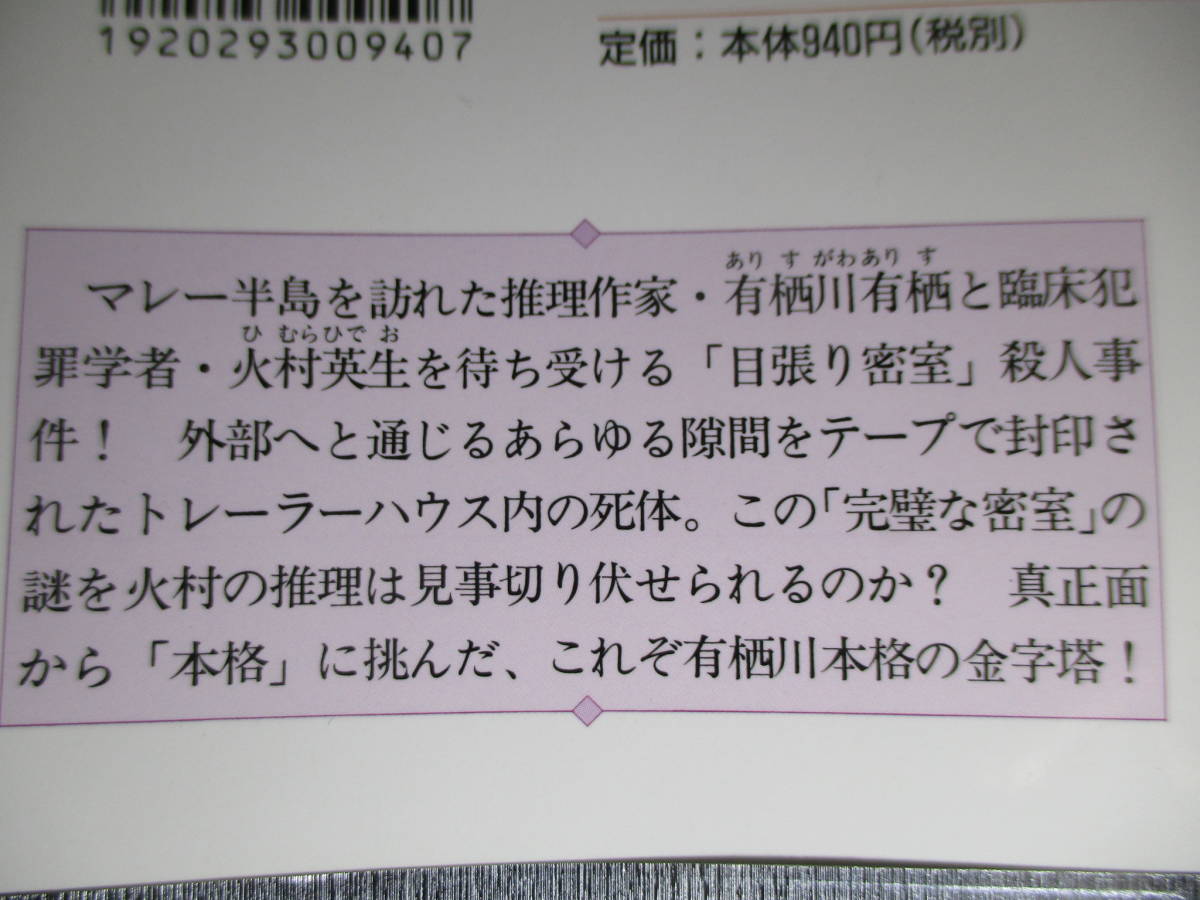 1920293009407
定価：本体940円（税別）
マレー半島を訪れた推理作家・有栖川有栖と臨床犯
罪学者・火村英生を待ち受ける「目張り密室」殺人事
件！　外部へと通じるあらゆる隙間をテープで封印さ
れたトレーラーハウス内の死体。この「完璧な密室」の
謎を火村の推理は見事切り伏せられるのか？　真正面
から「本格」に挑んだ、これぞ有栖川本格の金字塔！
ありすがわありす
ひむらひでお